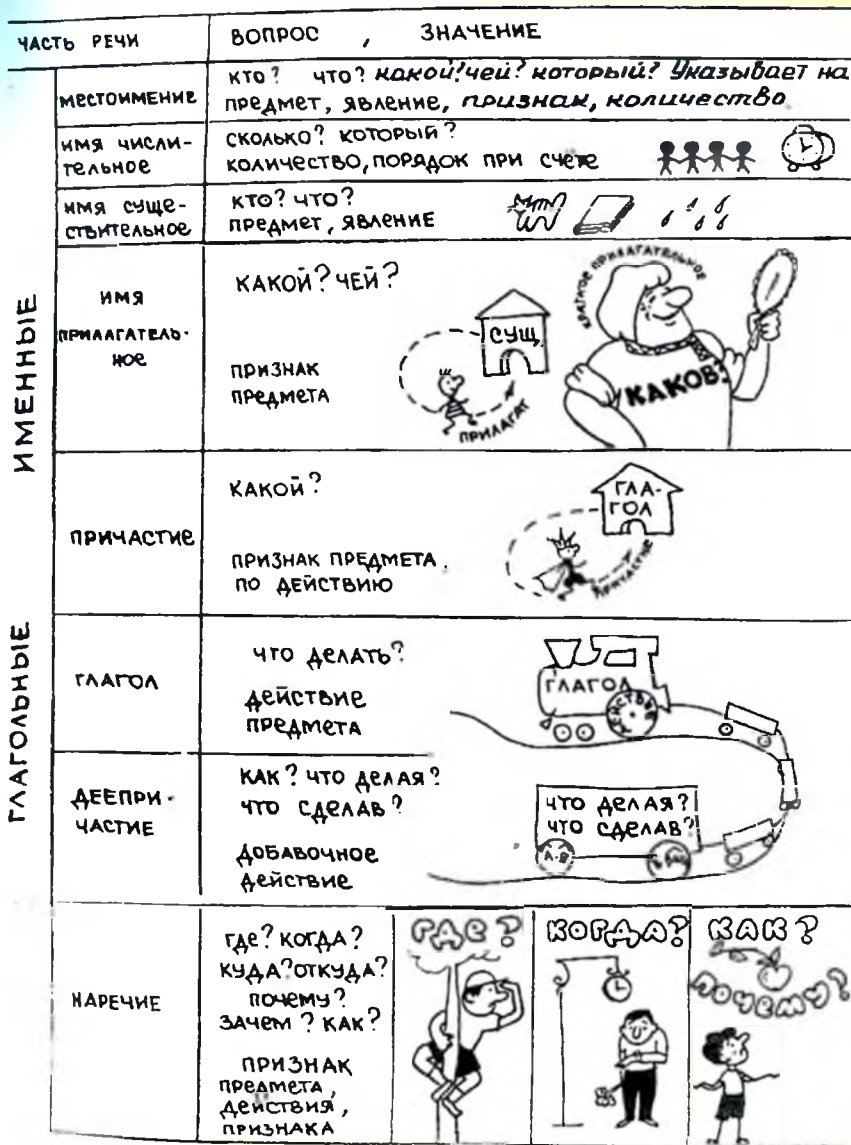 ЧАСТЬ РЕЧИ
ВОПРОС , ЗНАЧЕНИЕ
ИМЕННЫЕ
ГЛАГОЛЬНЫЕ
МЕСТОИМЕНИЕ
КТО? ЧТО? какой? чей? который? Указывает на
ПРЕДМЕТ, ЯВЛЕНИЕ, признак, количество
ИМЯ ЧИСЛИ-
ТЕЛЬНОЕ
СКОЛЬКО? КОТОРЫЙ?
КОЛИЧЕСТВО, ПОРЯДОК ПРИ СЧЕТЕ
ИМЯ СУЩЕ-
СТВИТЕЛЬНОЕ
КТО? ЧТО?
ПРЕДМЕТ, ЯВЛЕНИЕ
ИМЯ
ПРИЛАГАТЕЛЬ-
НОЕ
КАКОЙ? ЧЕЙ?
ПРИЗНАК
ПРЕДМЕТА
СУЩ.
ПРИЛАГАТ
КРАТКОЕ ПРИЛАГАТЕЛЬНОЕ
КАКОВ?
ПРИЧАСТИЕ
КАКОЙ?
ПРИЗНАК ПРЕДМЕТА
ПО ДЕЙСТВИЮ
ГЛА-
ГОЛ
ПРИЧАСТИЕ
ГЛАГОЛ
ЧТО ДЕЛАТЬ?
ДЕЙСТВИЕ
ПРЕДМЕТА
ГЛАГОЛ
ДЕЙСТВИЕ
ДЕЕПРИ-
ЧАСТИЕ
КАК? ЧТО ДЕЛАЯ?
ЧТО СДЕЛАВ?
ДОБАВОЧНОЕ
ДЕЙСТВИЕ
ЧТО ДЕЛАЯ?
ЧТО СДЕЛАВ?
А-Я
НАРЕЧИЕ
ГДЕ? КОГДА?
КУДА? ОТКУДА?
ПОЧЕМУ?
ЗАЧЕМ? КАК?
ПРИЗНАК
ПРЕДМЕТА,
ДЕЙСТВИЯ,
ПРИЗНАКА
ГДЕ?
КОГДА?
КАК?
ПОЧЕМУ?